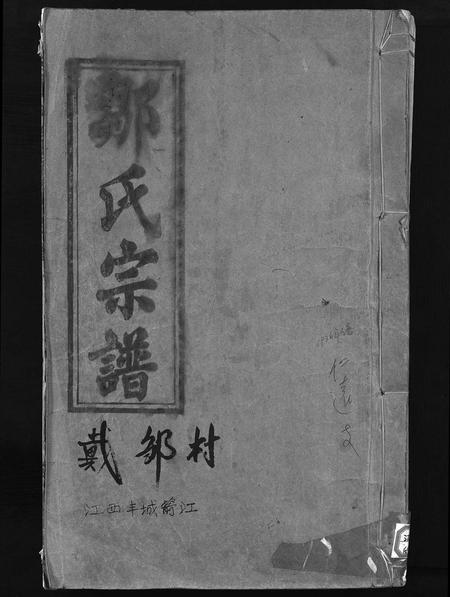 鄒氏宗譜
戴鄒村
江西丰城筲江
仁遠支